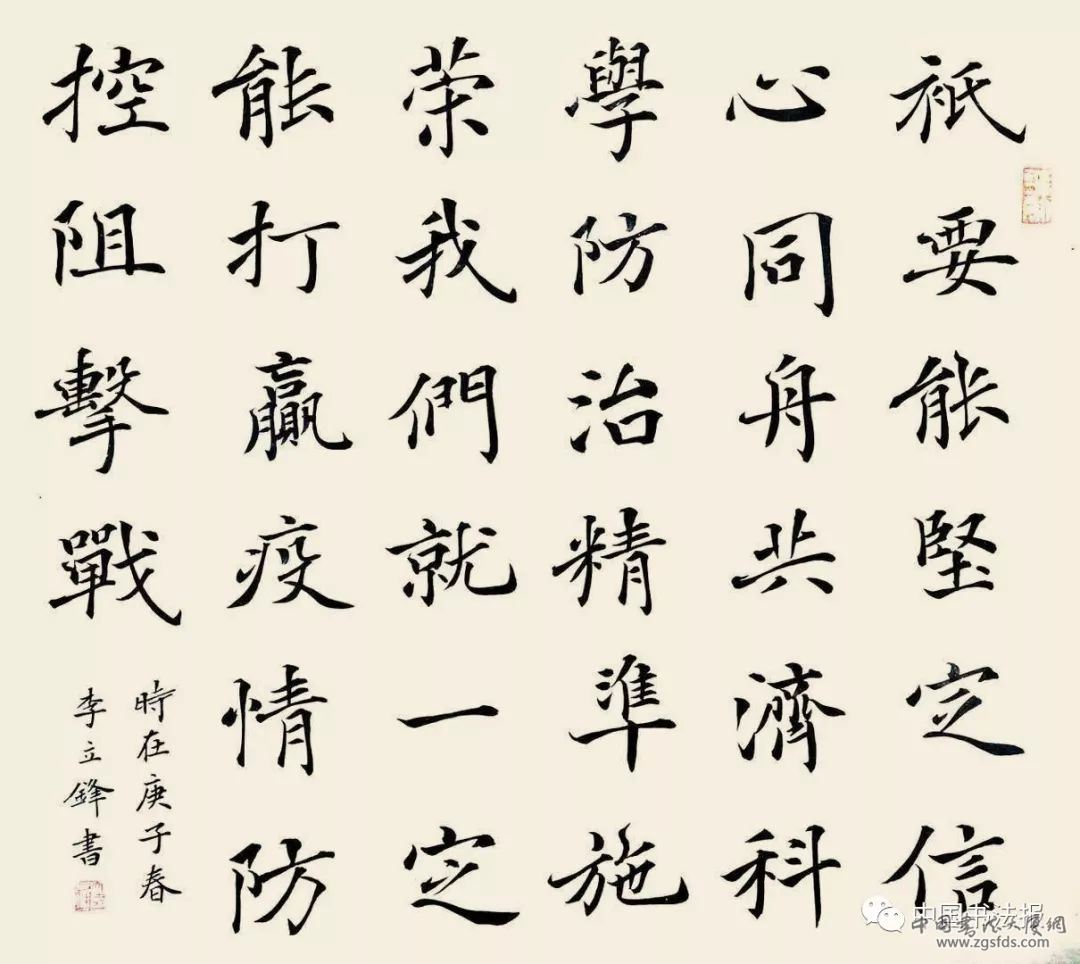 祇要能堅定信
心同舟共濟科
學防治精準施
策我們就一定
能打贏疫情防
控阻擊戰
時在庚子春
李立鋒書
中国书法报
www.zgsfds.com